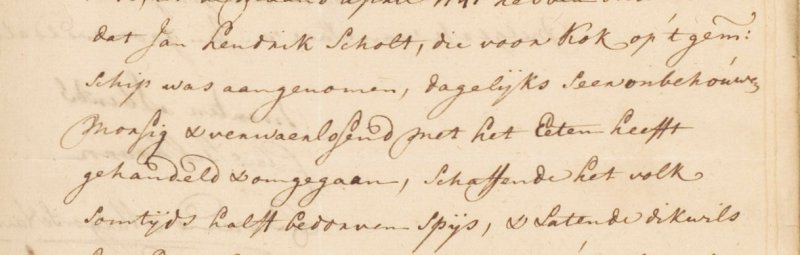 april 1741 hebben
dat Jan Hendrik Scholt, die voor Kok op 't gem:
schip was aangenomen, dagelijks seer onbehouwe
Morsig & verwaerlosend met het Eeten heefft
gehandeld & omgegaan, schaffende het volk
somtijds halff bedorven spijs, & Latende dikwils